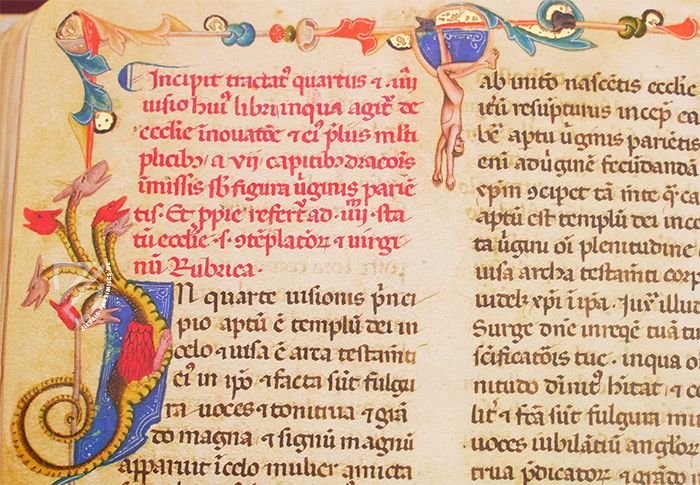 Incipit tractatꝰ quartus ⁊ .iiii
uisio huiꝰ libri inqua agit᷑ de
ecclīe īnouatōe ⁊ eiꝰ p̄lus mlti
plicibꝫ / a vii capitibꝫ draconis
īmissis sb figura ṽginis pariē
tis. Et ꝓpie refert᷑ ad .iiij. sta
tū ecclīe .s. ꝯtēplatoꝝ ⁊ virgi
nū Rubrica.
IN quarte uisionis p̄nci
pio aptū ē templū dei in
celo ⁊ uisa ē arca testamēti
eiꝰ in ip̄o ⁊ facta sūt fulgu
ra uoces ⁊ tonitrua ⁊ grā
do magna ⁊ signū magnū
apparuit īcelo mulier amicta
ab initō nascētis ecclīe
itū resūpturus incep̄
aptu ṽginis pariētis
eni ad ṽginē fecūdandā
xp̄m ꝯcipet tā inte
aptū est templū dei
ta ṽgini oī plenitudine
uisa archa testamēti
uidelꝫ xp̄i ī ip̄a. Iux̄ illud
Surge dn̄e inreq̄ē tuā
scificatōis tue. inqua
nitudo dīnitꝰ hītat ⁊
lit᷑ ⁊ fc̄a sūt fulgura
uoces iubilātiū angloꝝ
trua p̄dicatoꝝ ⁊